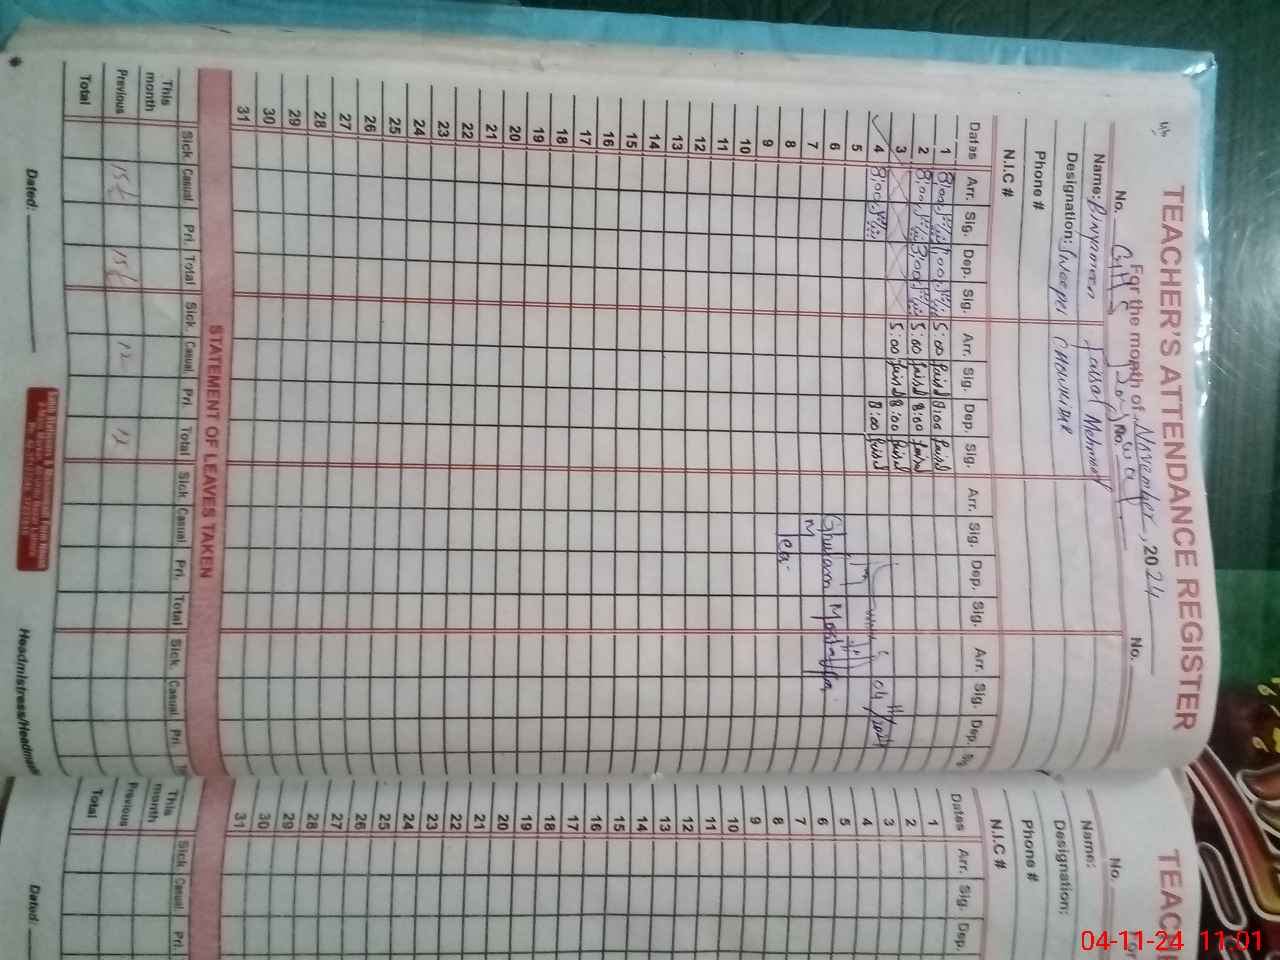 TEACHER'S ATTENDANCE REGISTER
For the month of November, 2024
No. No. No.
Name: Binyameen Faisal Mehmood
Designation: Sweeper CHOWKIDAR
Phone #
N.I.C #
Dates Arr. Sig. Dep. Sig. Arr. Sig. Dep. Sig. Arr. Sig. Dep. Sig. Arr. Sig. Dep.
1 8:00 1:00 5:00 faisal 8:00 faisal
2 8:00 8:00 5:00 faisal 8:00 faisal
3 5:00 faisal 8:00 faisal
4 8:00 8:00 faisal 04/11/2024
5
6 Ghulam Mustafa
7 M
8
9
10
11
12
13
14
15
16
17
18
19
20
21
22
23
24
25
26
27
28
29
30
31
STATEMENT OF LEAVES TAKEN
Sick Casual Pri. Total Sick. Casual. Pri. Total Sick Casual. Pri. Total Sick. Casual. Pri.
This month
Previous 12 12
Total
Dated: Headmistress/Headmas
TEAC
No.
Name:
Designation:
Phone #
N.I.C #
Dates Arr. Sig. Dep.
1
2
3
4
5
6
7
8
9
10
11
12
13
14
15
16
17
18
19
20
21
22
23
24
25
26
27
28
29
30
31
Sick Casual Pri.
This month
Previous
Total
Dated:
04-11-24 11:01